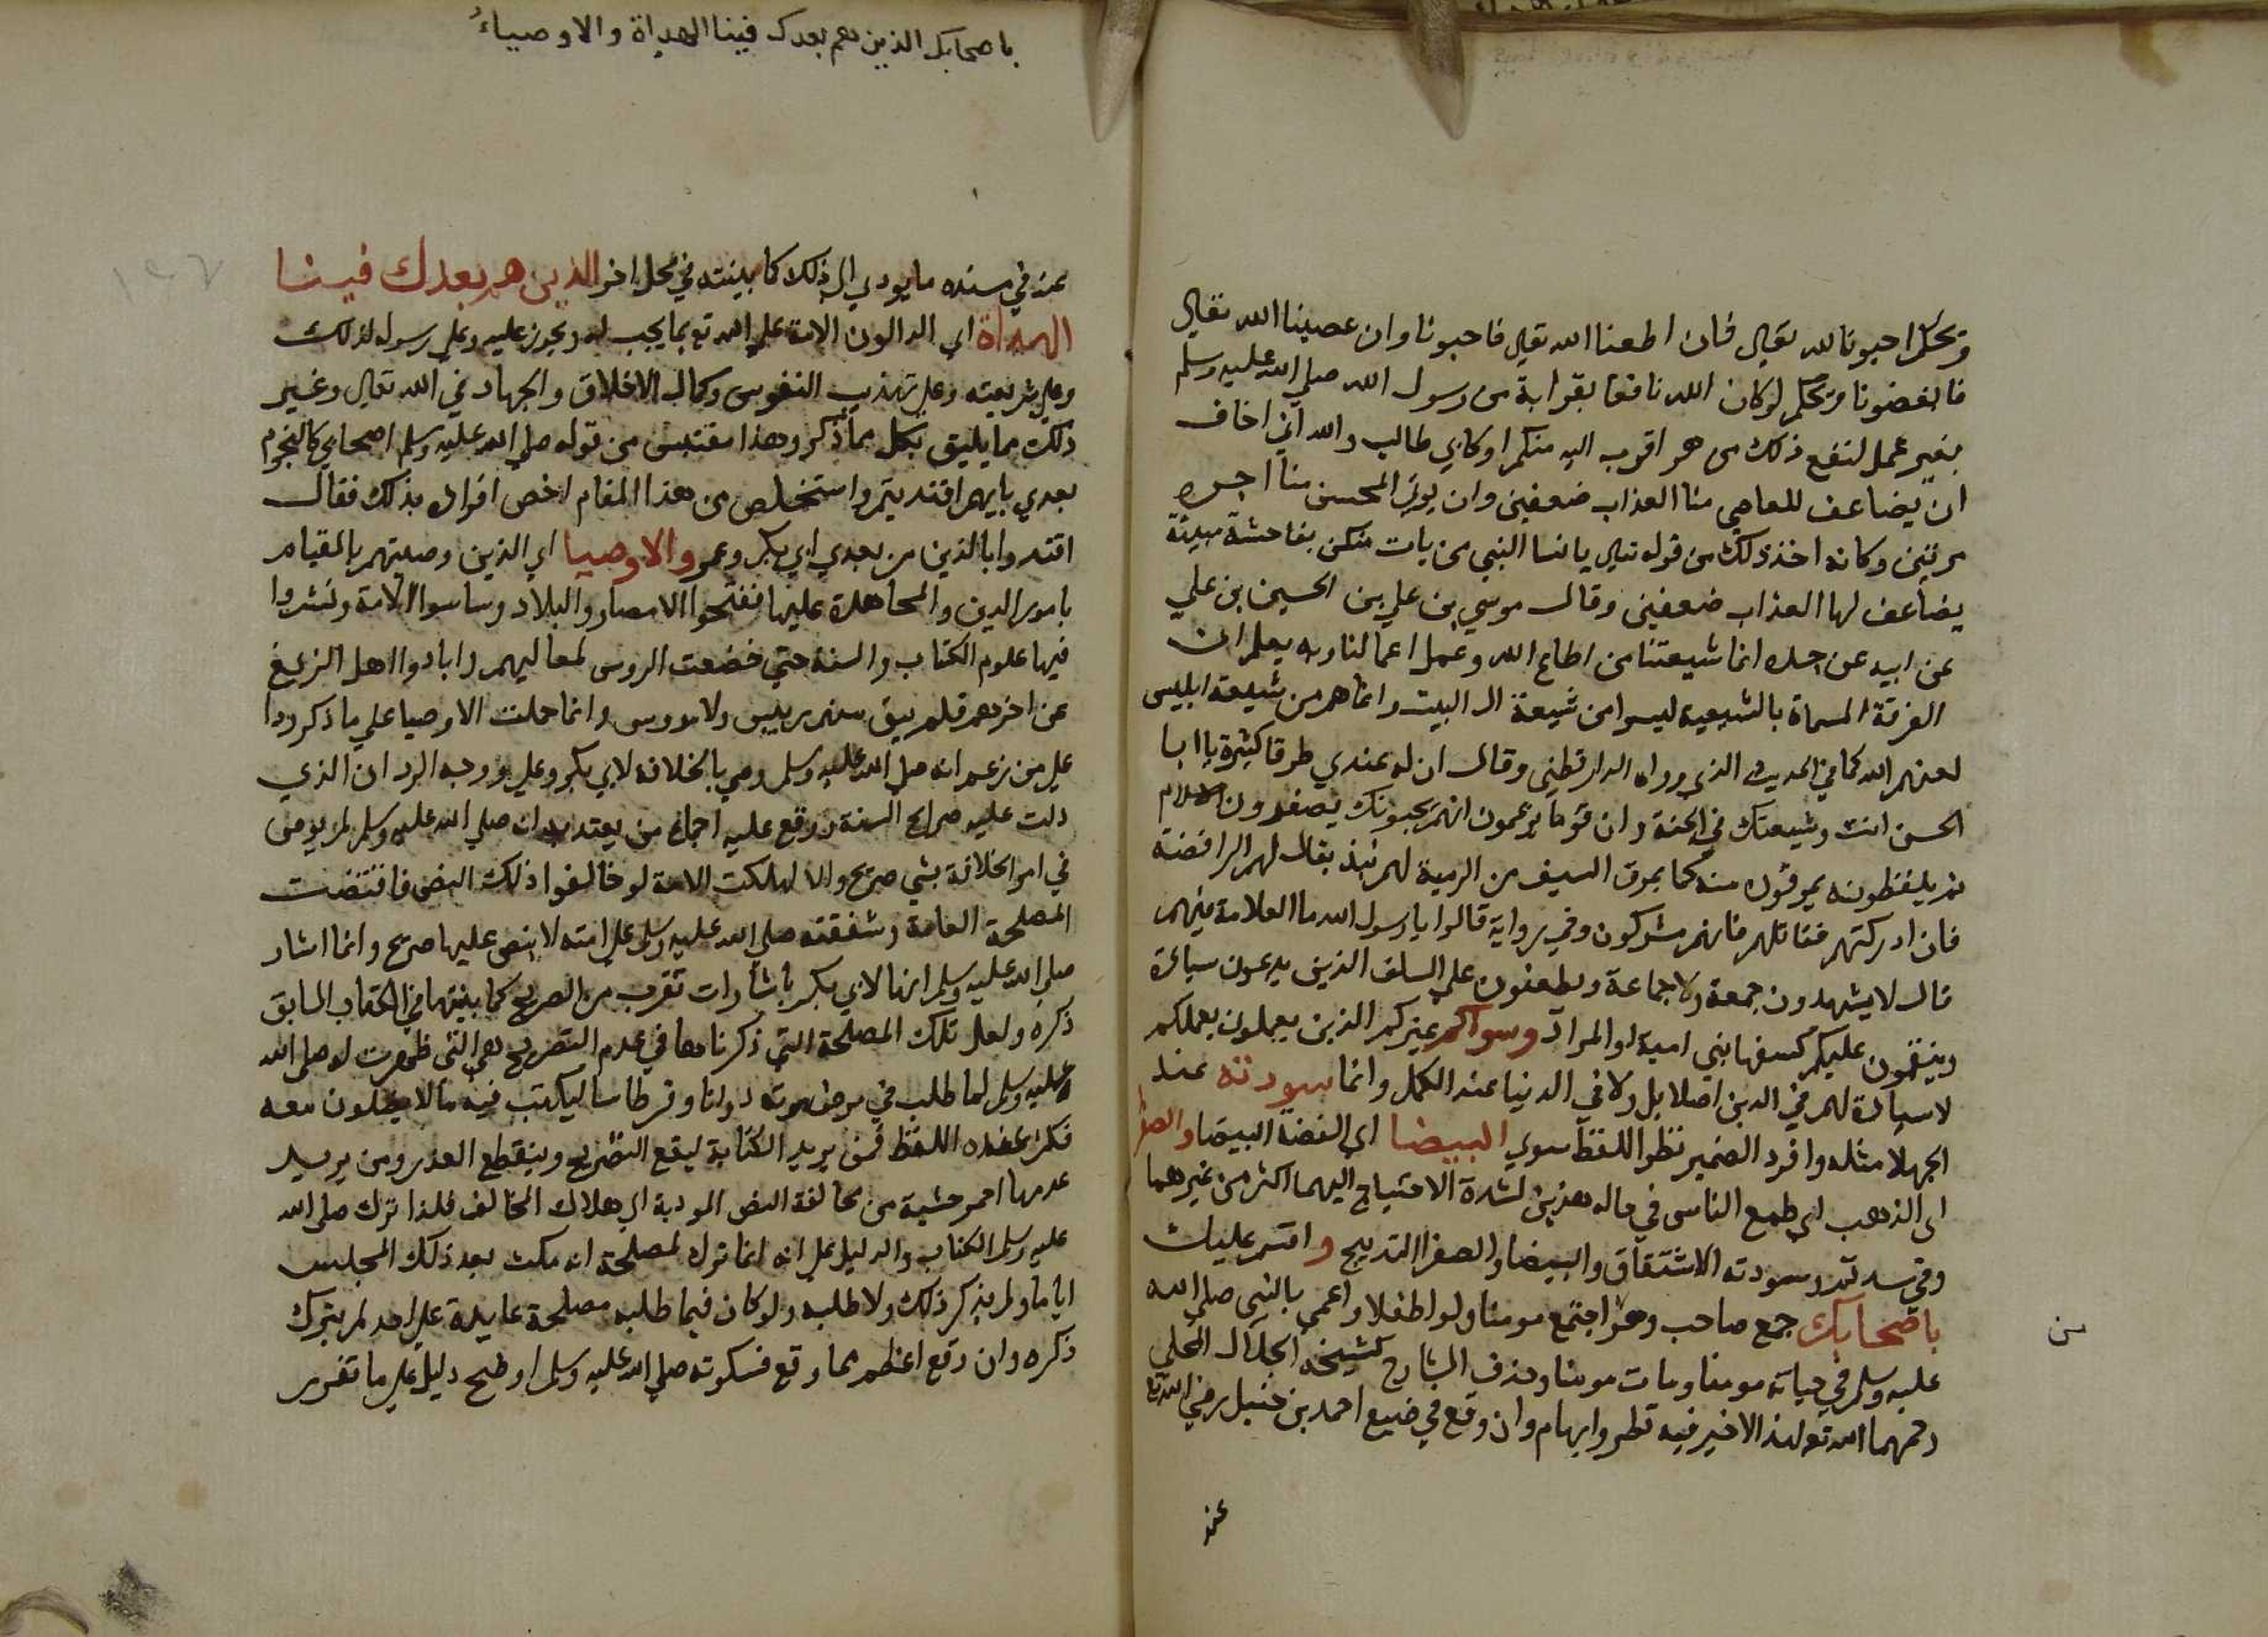 ويحكم احبونا لله تعالى فان اطعنا الله تعالى فاحبونا وان عصينا الله تعالى
فابغضونا ويحكم لو كان الله نافعا بقرابة من رسول الله صلى الله عليه وسلم
بغير عمل لنفع ذلك من هو اقرب اليه منكم او كابي طالب والله اني اخاف
ان يضاعف للعاصي منا العذاب ضعفين وان يوتى المحسن منا اجره
مرتين وكانه اخذ ذلك من قوله تعالى يا نسا النبي من يات منكن بفاحشة مبينة
يضاعف لها العذاب ضعفين وقال موسي بن علي بن الحسين بن علي
عن ابيه عن جده انما شيعتنا من اطاع الله وعمل اعمالنا وبه يعلم ان
الفرقة المسماة بالشيعة ليسوا من شيعة ال البيت وانما هم من شيعة ابليس
لعنهم الله كما في الحديث الذي رواه الدارقطني وقال ان له عندي طرقا كثيرة يا ابا
الحسن انت وشيعتك في الجنة وان قوما يزعمون انهم يحبونك يصغرون الاسلام
ثم يلفظونه يمرقون منه كما يمرق السيف من الرمية لهم نبذ يقال لهم الرافضة
فان ادركتهم فقاتلهم فانهم مشركون وفي رواية قالوا يا رسول الله ما العلامة فيهم
قال لا يشهدون جمعة ولا جماعة ويطعنون على السلف الذين يدعون سيادة
وينقمون عليكم كسفها بني امية او المراد وسواكم غيركم الذين يعملون بعملكم
لا سيادة لهم في الدين اصلا بل ولا في الدنيا عند الكمل وانما سودته عند
الجهلا مثله وافرد الضمير نظرا للفظ سوي البيضا اي الفضة البيضا والصفرا
اي الذهب اي طمع الناس في ماله هذين لشدة الاحتياج اليهما اكثر من غيرهما
وفي سدتم وسودته الاشتقاق والبيضا والصفرا التدبيج واقسم عليك
باصحابك جمع صاحب وهو اجتمع مومنا ولو طفلا واعمى بالنبي صلى الله
من
عليه وسلم في حياته مومنا ومات مومنا وحذف الشارح كشيخه الجلال المحلي
رحمهما الله تعالى هذا الاخير فيه نظر وايهام وان وقع في صنيع احمد بن حنبل رضي الله تعالى
عنه
باصحابك الذين هم بعدك فينا الهداة والاوصياءُ
١٤٧
عنه في مسنده ما يودي الى ذلك كما بينته في محل اخر الذين هم بعدك فينا
الهداة اي الدالون الامة على الله تع بما يجب له ويجوز عليه وعلى رسوله لذلك
وعلى شريعته وعلى تهذيب النفوس وكمال الاخلاق والجهاد في الله تعالى وغير
ذلك مما يليق بكل مما ذكر وهذا مقتبس من قوله صلى الله عليه وسلم اصحابي كالنجوم
بعدي بايهم اقتديتم واستخلص من هذا المقام اخص افراده بذلك فقال
اقتدوا بالذين من بعدي ابي بكر وعمر والاوصيا اي الذين وصيتهم بالقيام
بامور الدين والمحاهدة عليها ففتحوا الامصار والبلاد وساسوا الامة ونشروا
فيها علوم الكتاب والسنة حتي خضعت الروس لمعاليهم وابادوا اهل الزيغ
عن اخرهم فلم يبق منهم رييس ولا مروس وانما حملت الاوصيا على ما ذكر ردا
على من زعم انه صلى الله عليه وسلم وصي بالخلافة لابي بكر وعلي ووجه الرد ان الذي
دلت عليه صرايح السنة ووقع عليه اجماع من يعتد به انه صلى الله عليه وسلم لم يوص
في امر الخلافة بشي صريح والا لهلكت الامة لو خالفوا ذلك النص فاقتضت
المصلحة العامة وشفقته صلى الله عليه وسلم على امته لا ينص عليها صريح وانما اشار
صلى الله عليه وسلم انها لابي بكر باشارات تقرب من الصريح كما بينتها في الكتاب السابق
ذكره ولعل تلك المصلحة التي ذكرناها في عدم التصريح هي التي ظهرت له صلى الله
عليه وسلم لما طلب في مرض موته دواتا وقرطاسا ليكتب فيه ما لا يضلون معه
فكثر عنده اللغط فمن يريد الكتابة ليقع التصريح وينقطع العذر ومن يريد
عدمها احمر خشية من مخالفة النص المودية الى هلاك المخالف فلذا ترك صلى الله
عليه وسلم الكتاب والدليل على انه انما ترك لمصلحة انه مكث بعد ذلك المجلس
اياما ولم يذكر ذلك ولا طلبه ولو كان فيما طلبه مصلحة عايدة على احد لم يترك
ذكره وان وقع اعظم مما وقع فسكوته صلى الله عليه وسلم اوضح دليل على ما تقرر